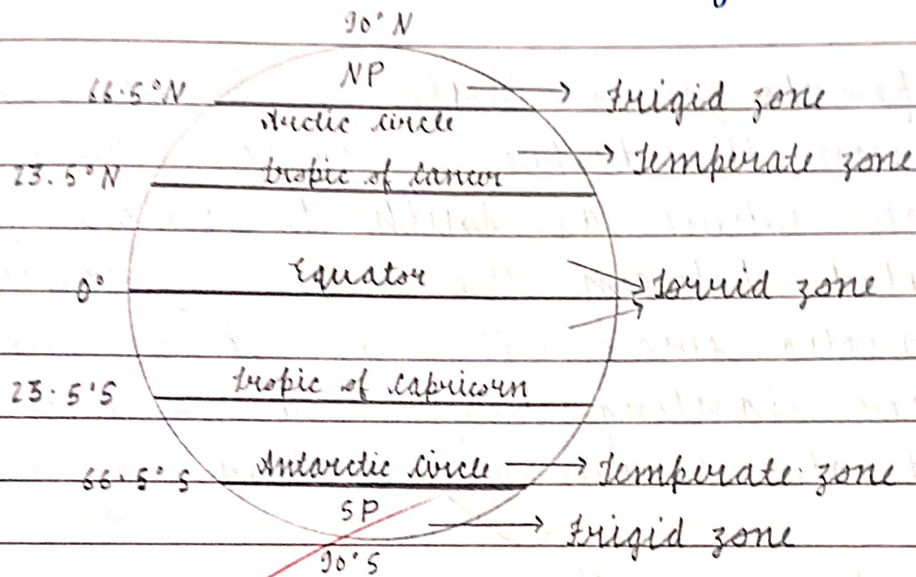 90°N
NP
66.5°N → Frigid zone
Arctic circle
→ Temperate zone
23.5°N tropic of cancer
0° Equator → Torrid zone
23.5°S tropic of capricorn
66.5°S Antarctic circle → Temperate zone
SP
→ Frigid zone
90°S